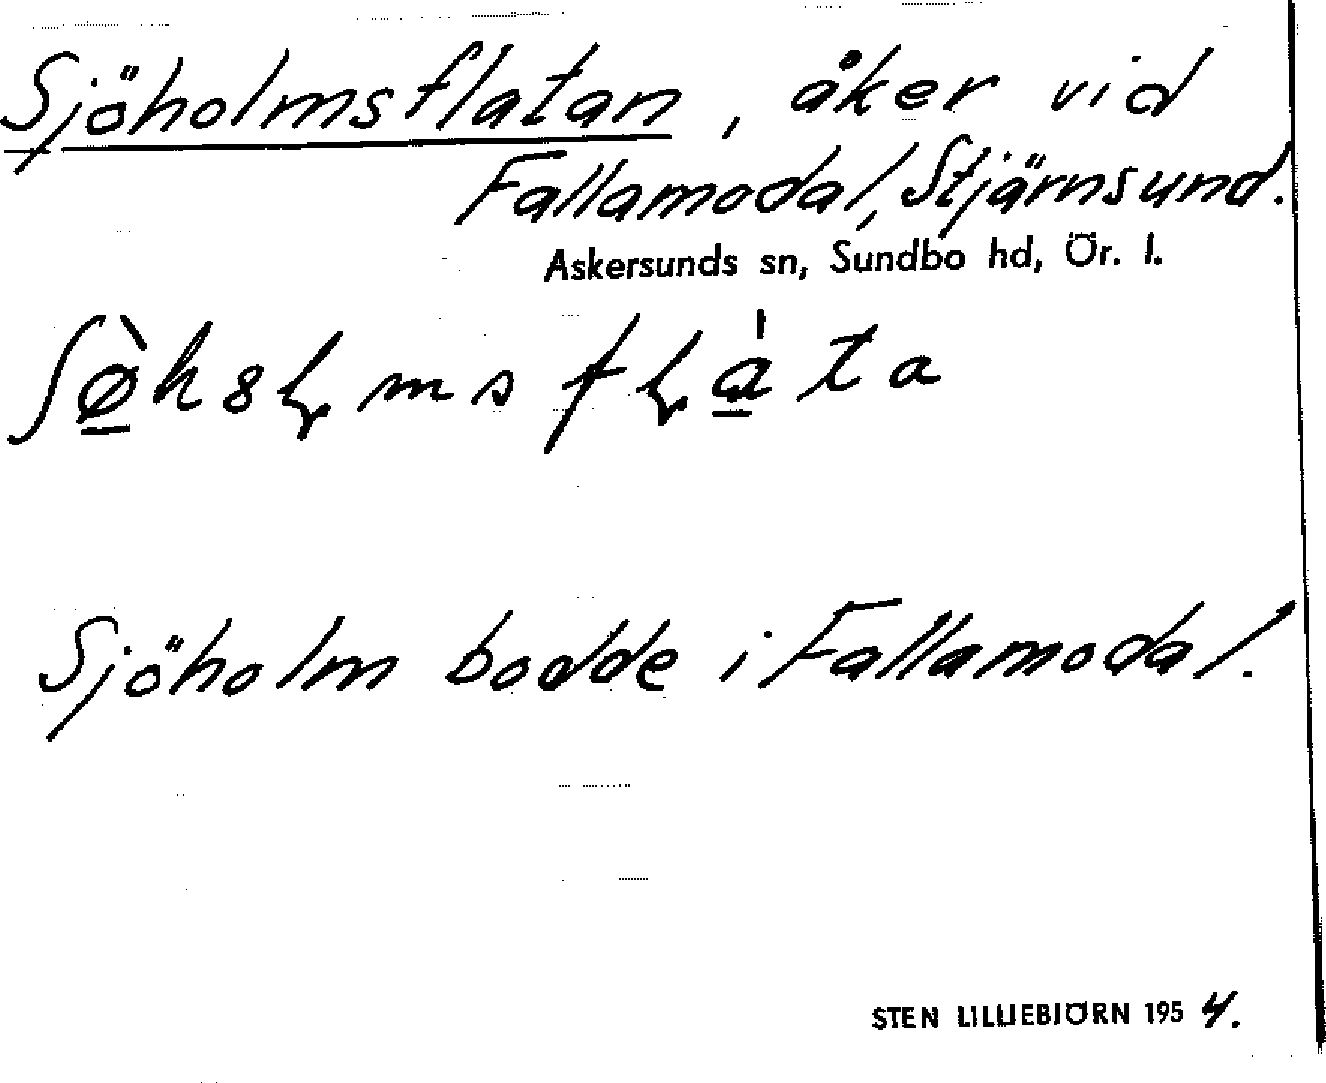 Sjöholmsflatan, åker vid
Fallamodal, Stjärnsund.
Askersunds sn, Sundbo hd, Ör. l.
Sjöholm bodde i Fallamodal.
STEN LILLIEBJÖRN 1954.